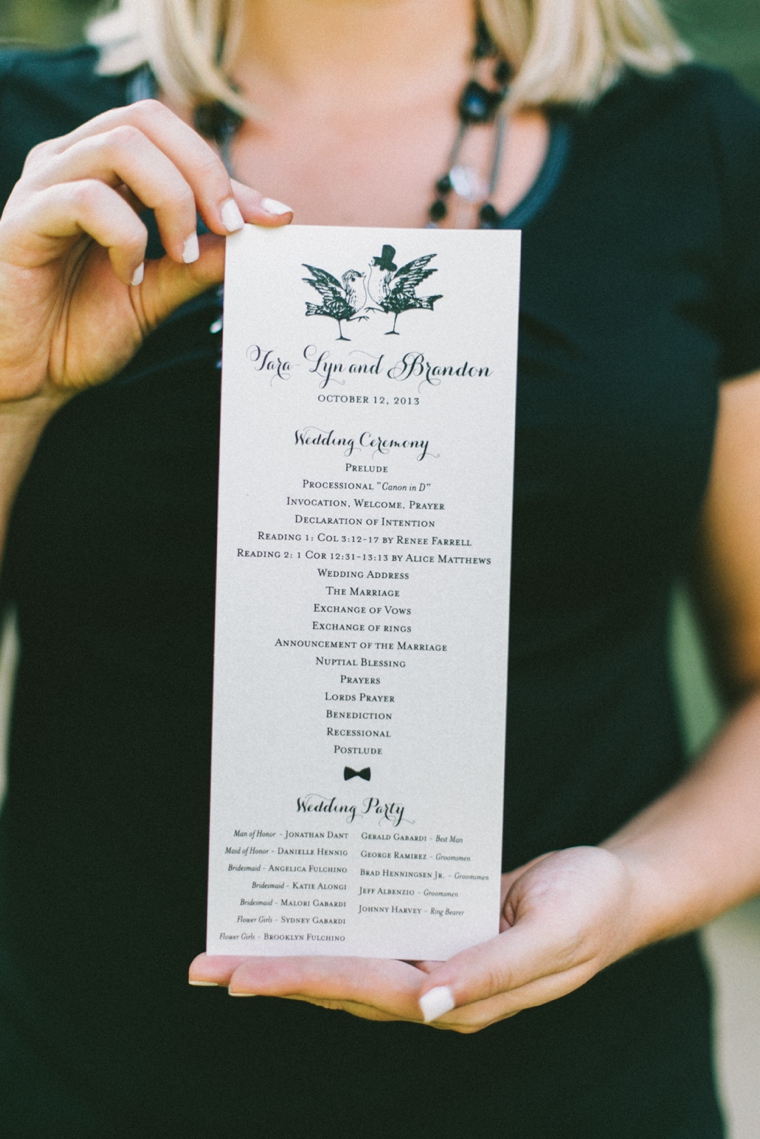 Tara-Lyn and Brandon
OCTOBER 12, 2013
Wedding Ceremony
PRELUDE
PROCESSIONAL "Canon in D"
INVOCATION, WELCOME, PRAYER
DECLARATION OF INTENTION
READING 1: COL 3:12-17 BY RENEE FARRELL
READING 2: 1 COR 12:31-13:13 BY ALICE MATTHEWS
WEDDING ADDRESS
THE MARRIAGE
EXCHANGE OF VOWS
EXCHANGE OF RINGS
ANNOUNCEMENT OF THE MARRIAGE
NUPTIAL BLESSING
PRAYERS
LORDS PRAYER
BENEDICTION
RECESSIONAL
POSTLUDE
Wedding Party
Man of Honor - JONATHAN DANT
Maid of Honor - DANIELLE HENNIG
Bridesmaid - ANGELICA FULCHINO
Bridesmaid - KATIE ALONGI
Bridesmaid - MALORI GABARDI
Flower Girls - SYDNEY GABARDI
Flower Girls - BROOKLYN FULCHINO
GERALD GABARDI - Best Man
GEORGE RAMIREZ - Groomsmen
BRAD HENNINGSEN JR. - Groomsmen
JEFF ALBENZIO - Groomsmen
JOHNNY HARVEY - Ring Bearer